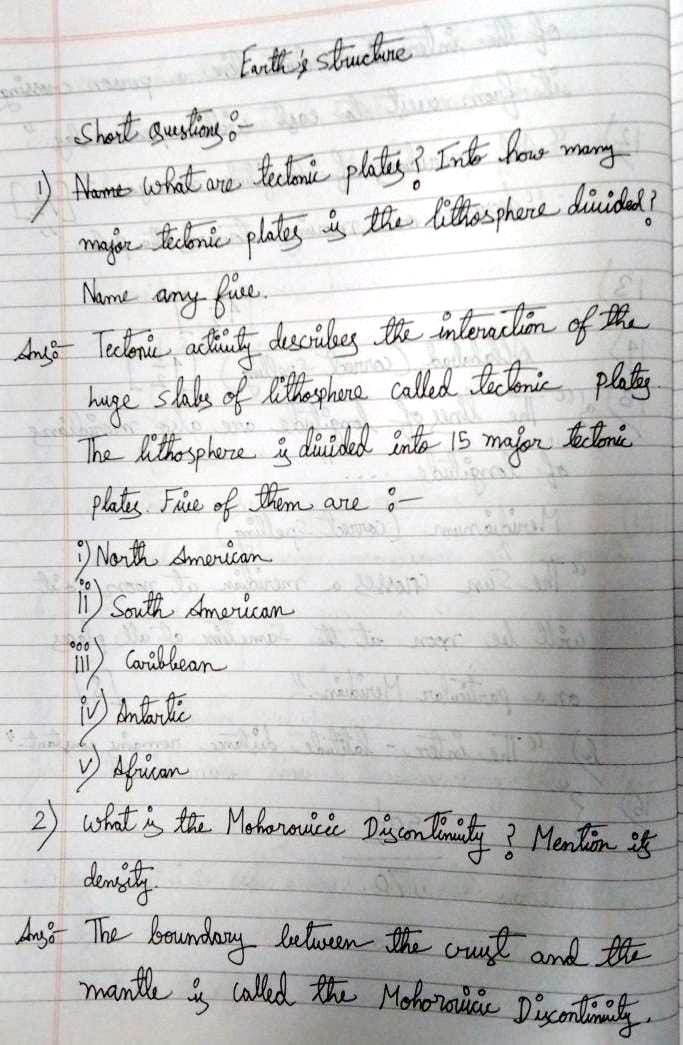 Earth's Structure
Short Questions :-
1) Name What are tectonic plates? Into how many
major tectonic plates is the lithosphere divided?
Name any five.
Ans:- Tectonic activity describes the interaction of the
huge slabs of lithosphere called tectonic plates.
The lithosphere is divided into 15 major tectonic
plates. Five of them are :-
i) North American
ii) South American
iii) Caribbean
iv) Antartic
v) African
2) What is the Mohorovicic Discontinuity? Mention its
density.
Ans:- The boundary between the crust and the
mantle is called the Mohorovicic Discontinuity.